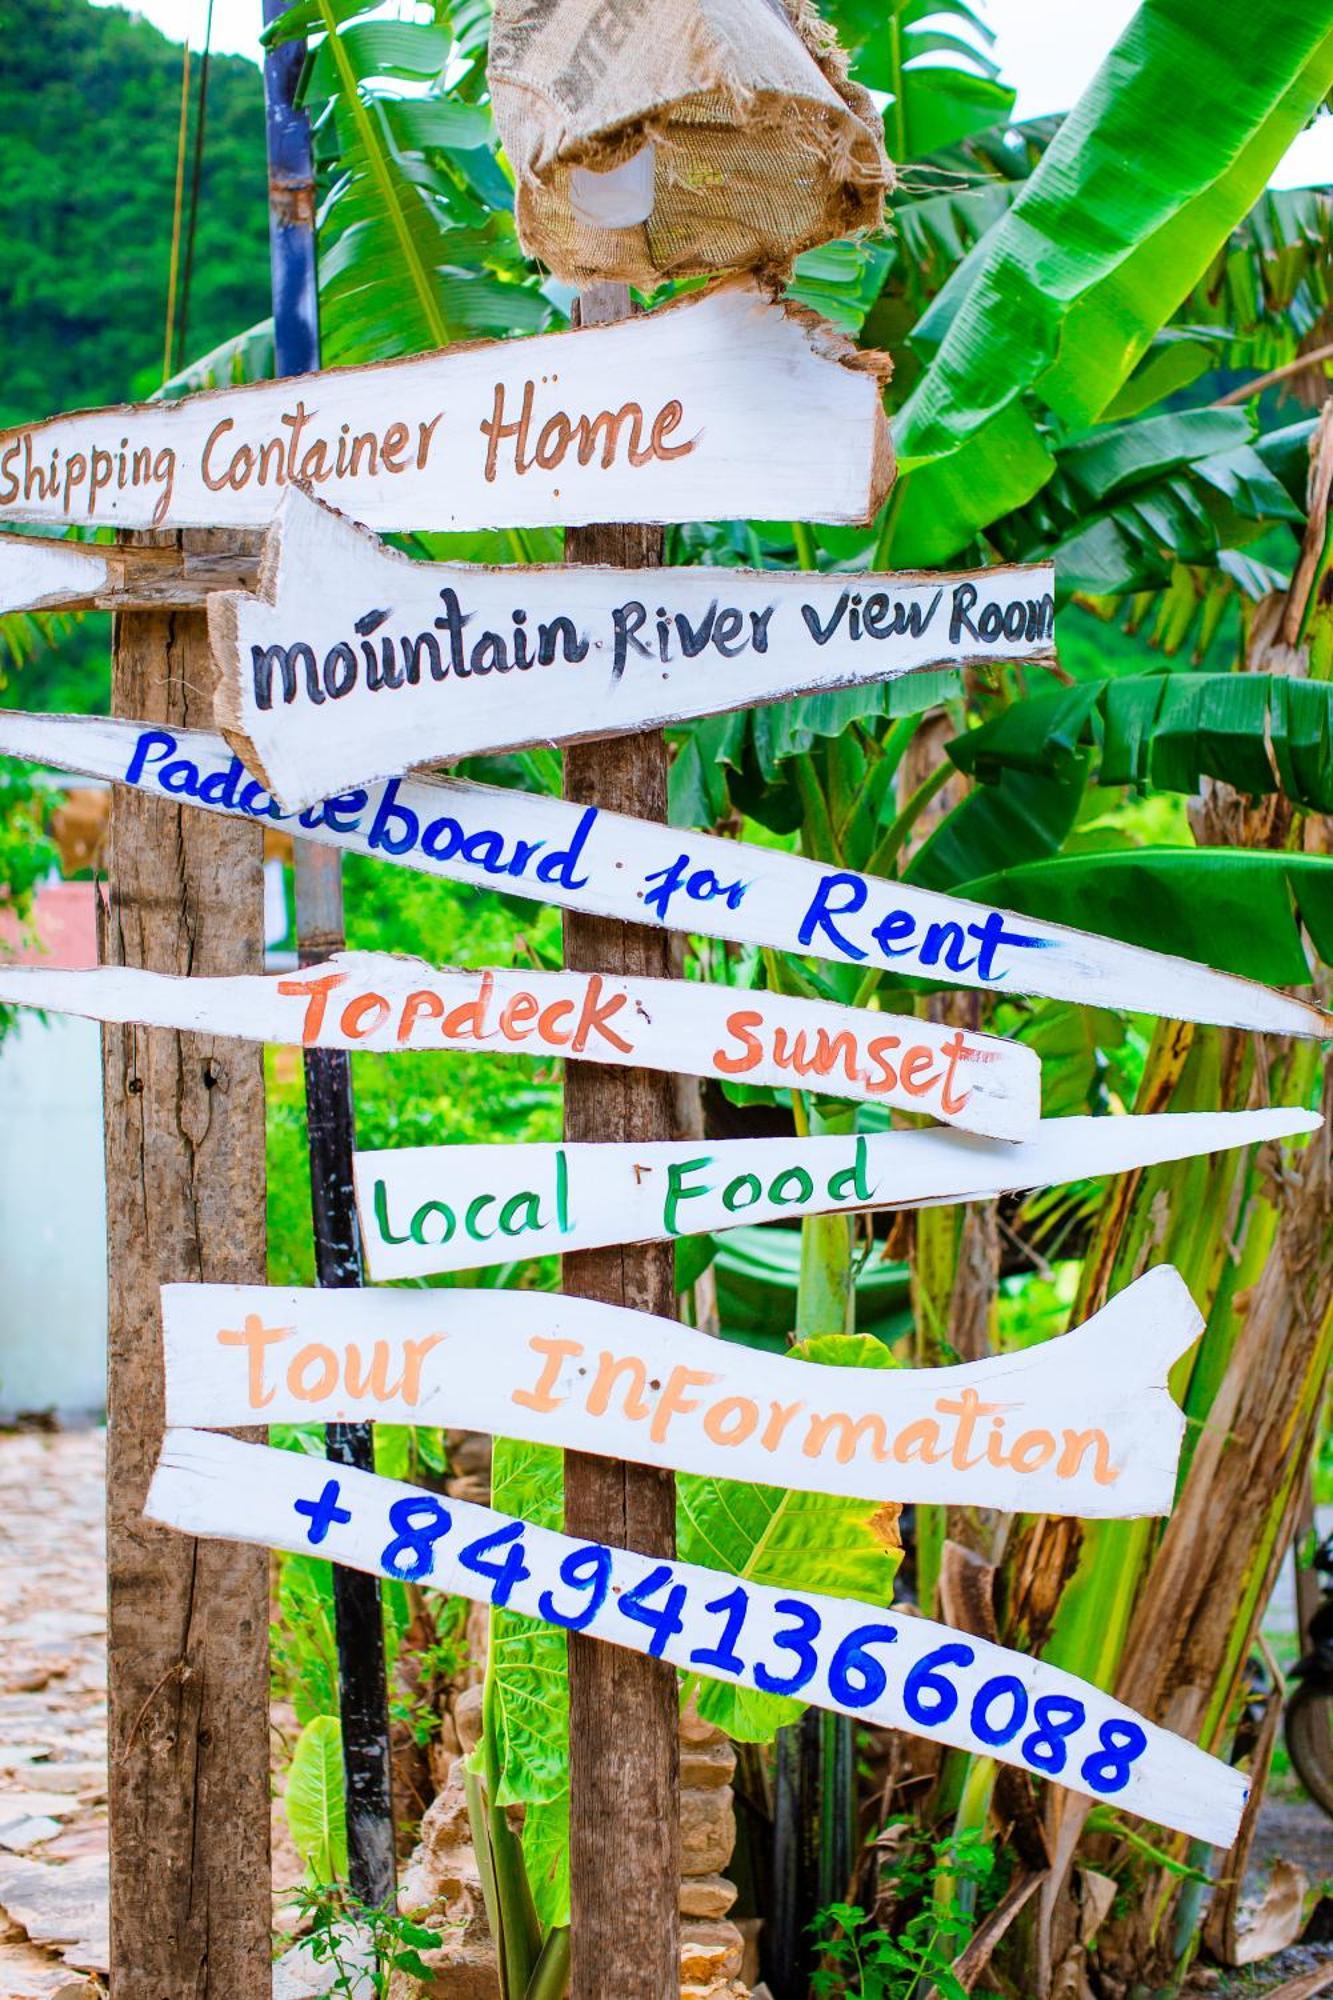 Shipping Container Home
mountain River view Room
Paddleboard for Rent
Topdeck sunset
Local Food
tour InFormation
+84941366088